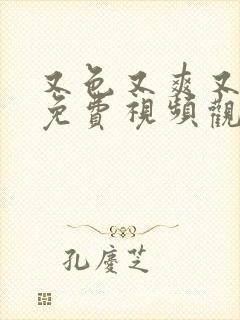 又色又爽又
免費視頻觀
孔慶芝